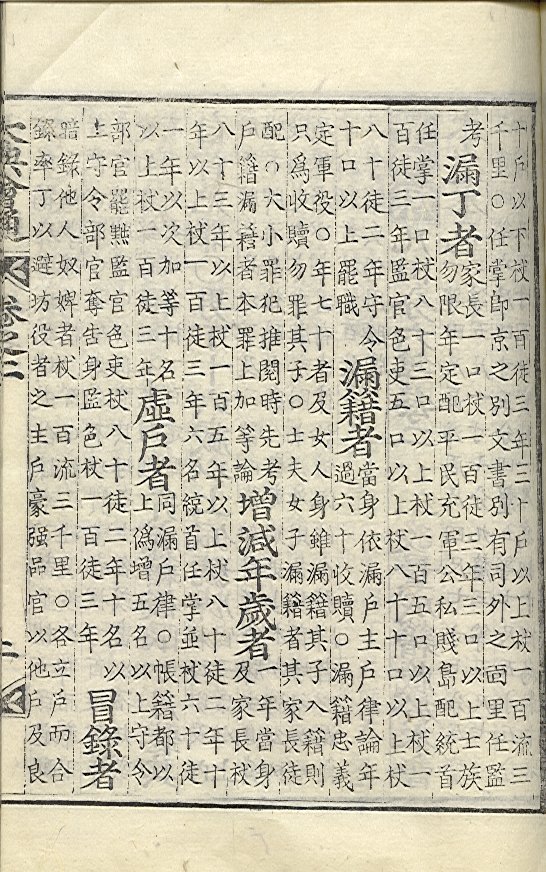 十戶以下杖一百徒三年三十戶以上杖一百流三
千里○任掌卽京之別文書別有司外之面里任監
考
漏丁者
家長一口杖一百徒三年三口以上士族
勿限年定配平民充軍公私賤島配統首
任掌一口杖八十三口以上杖一百五口以上杖一
百徒三年監官色吏五口以上杖八十十口以上杖
八十徒二年守令
十口以上罷職
漏籍者
當身依漏戶主戶律論年
過六十收贖○漏籍忠義
定軍役○年七十者及女人身雖漏籍其子入籍則
只爲收贖勿罪其子○士夫女子漏籍者其家長徒
配○大小罪犯推閱時先考
戶籍漏籍者本罪上加等論
增減年歲者
一年當身
及家長杖
八十三年以上杖一百五年以上杖八十徒二年十
年以上杖一百徒三年六名統首任掌並杖六十徒
一年以次加等十名
以上杖一百徒三年
虛戶者
同漏戶律○帳籍都以
上僞增五名以上守令
部官罷黜監官色吏杖八十徒二年十名以
上守令部官奪告身監色杖一百徒三年
冒錄者
暗錄他人奴婢者杖一百流三千里○各立戶而合
錄率丁以避坊役者之主戶豪强品官以他戶及良
大典會通 卷之二 二